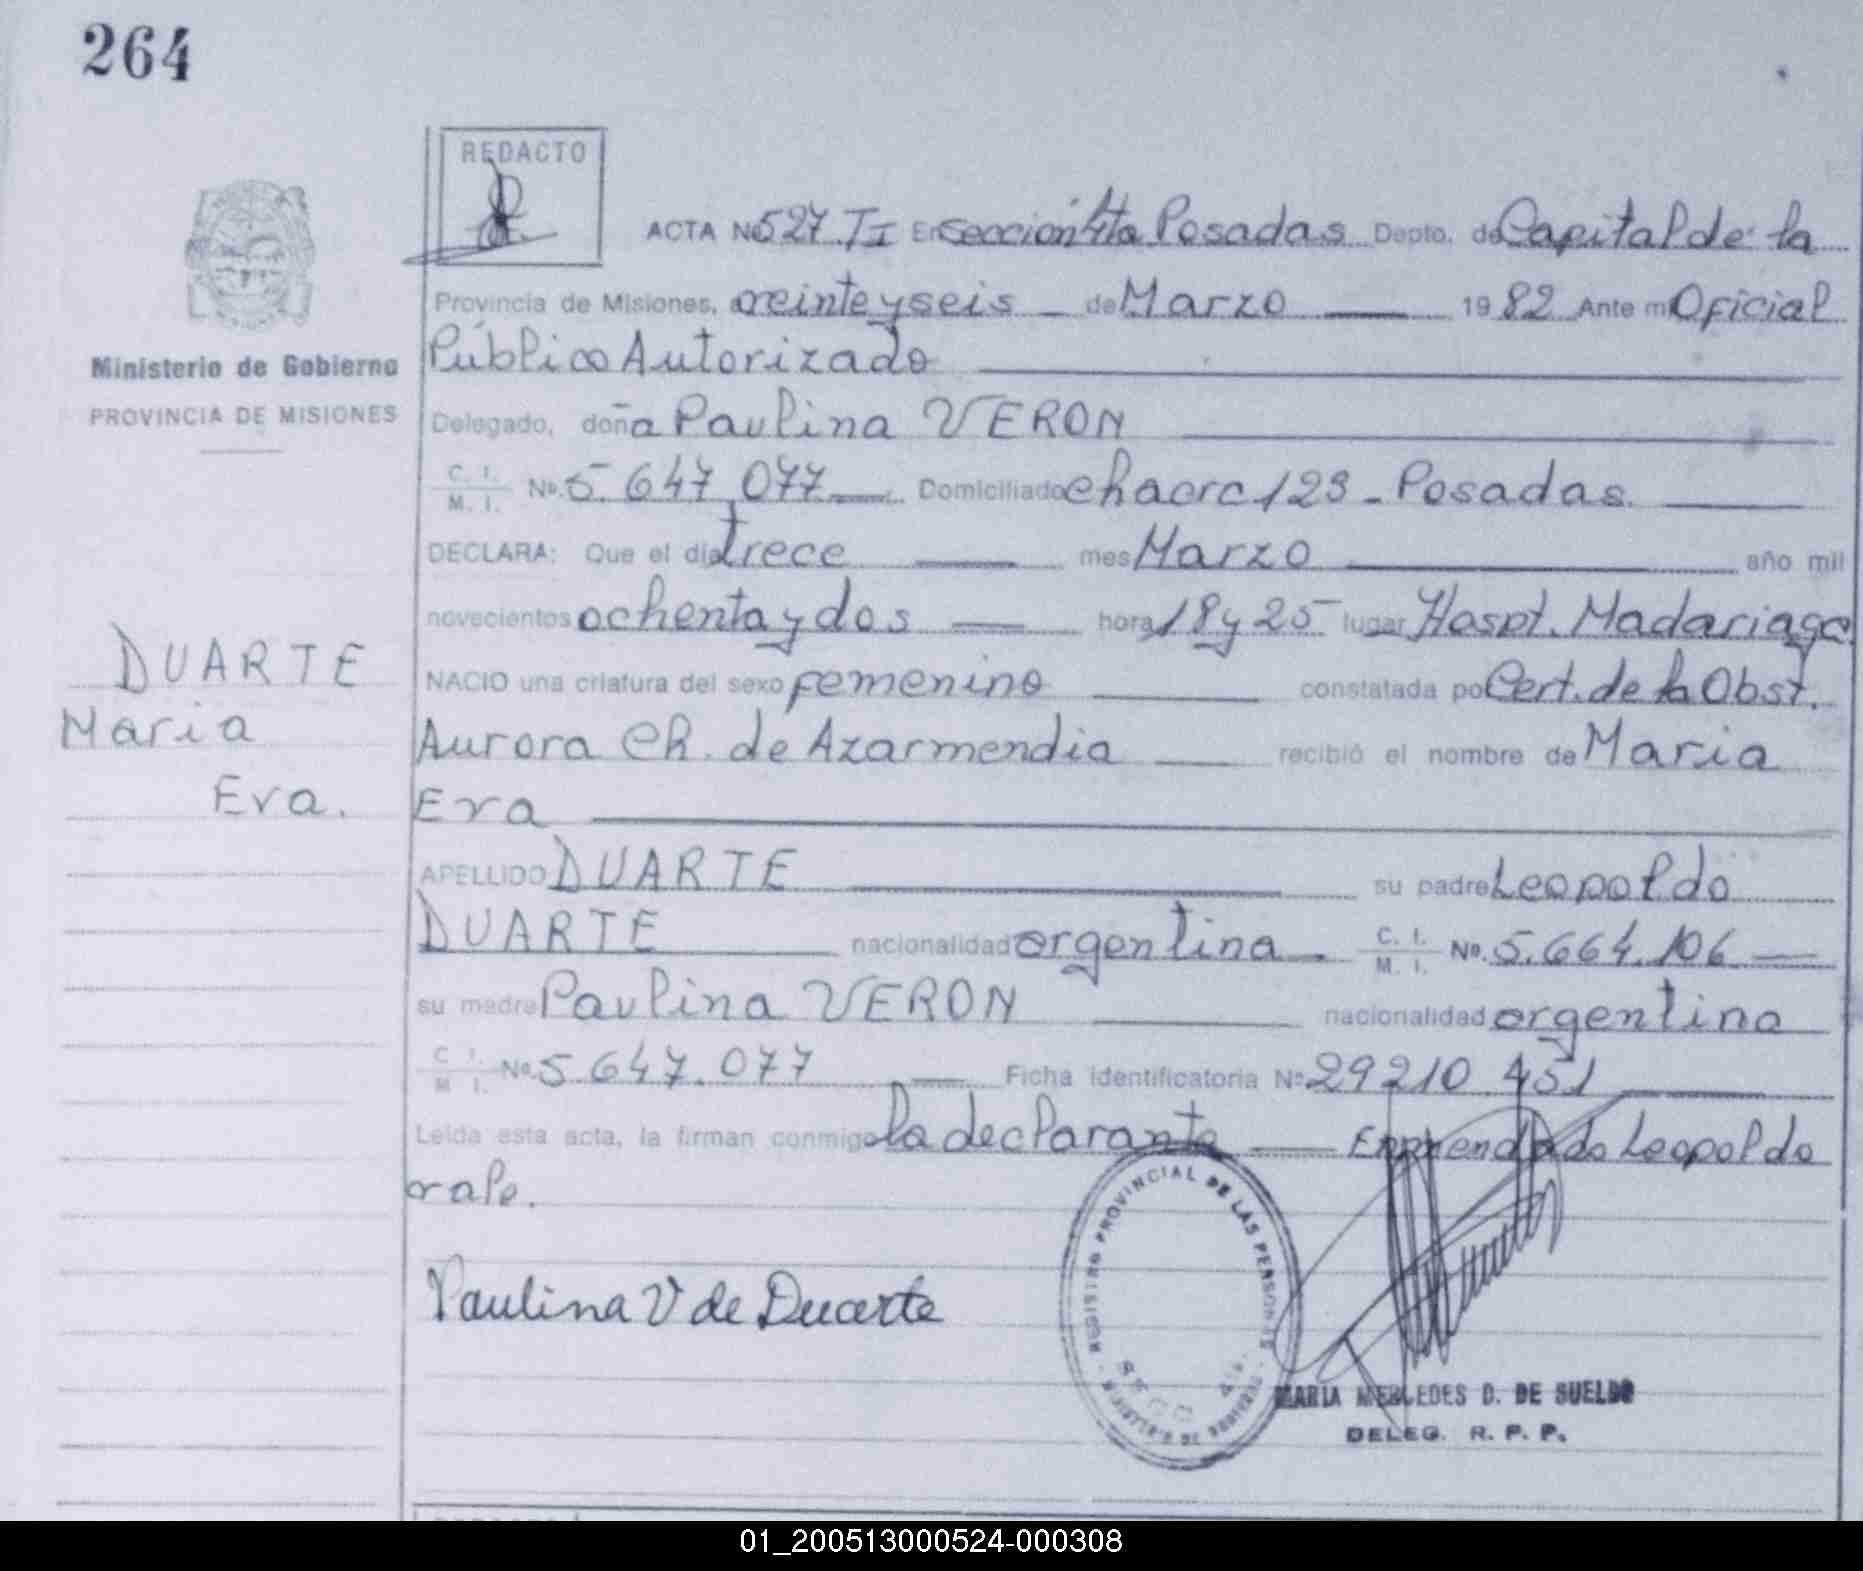 264
REDACTO
ACTA Nº 527 TI En Sección 4ta Posadas Depto. de Capital de la
Provincia de Misiones, a veinte y seis de Marzo 1982 Ante mi Oficial
Público Autorizado
Ministerio de Gobierno
PROVINCIA DE MISIONES
Delegado, doña Paulina VERON
C. I.
M. I. Nº. 5.647.077 Domiciliado chacra 123 - Posadas.
DECLARA: Que el día trece mes Marzo año mil
novecientos ochenta y dos hora 18 y 25 lugar Hospt. Madariaga
NACIO una criatura del sexo femenino constatada por Cert. de la Obst.
Aurora Ch. de Azarmendia recibió el nombre de Maria
Eva
DUARTE
Maria
Eva.
APELLIDO DUARTE su padre Leopoldo
DUARTE nacionalidad argentina C. I.
M. I. Nº. 5.664.106
su madre Paulina VERON nacionalidad argentina
C. I.
M. I. Nº. 5.647.077 Ficha identificatoria Nº 29210 451
Leída esta acta, la firman conmigo la declarante Enmendado Leopoldo
vale.
Paulina V de Duarte
REGISTRO PROVINCIAL DE LAS PERSONAS
MARIA MERCEDES D. DE SUELDO
DELEG. R. P. P.
01_200513000524-000308